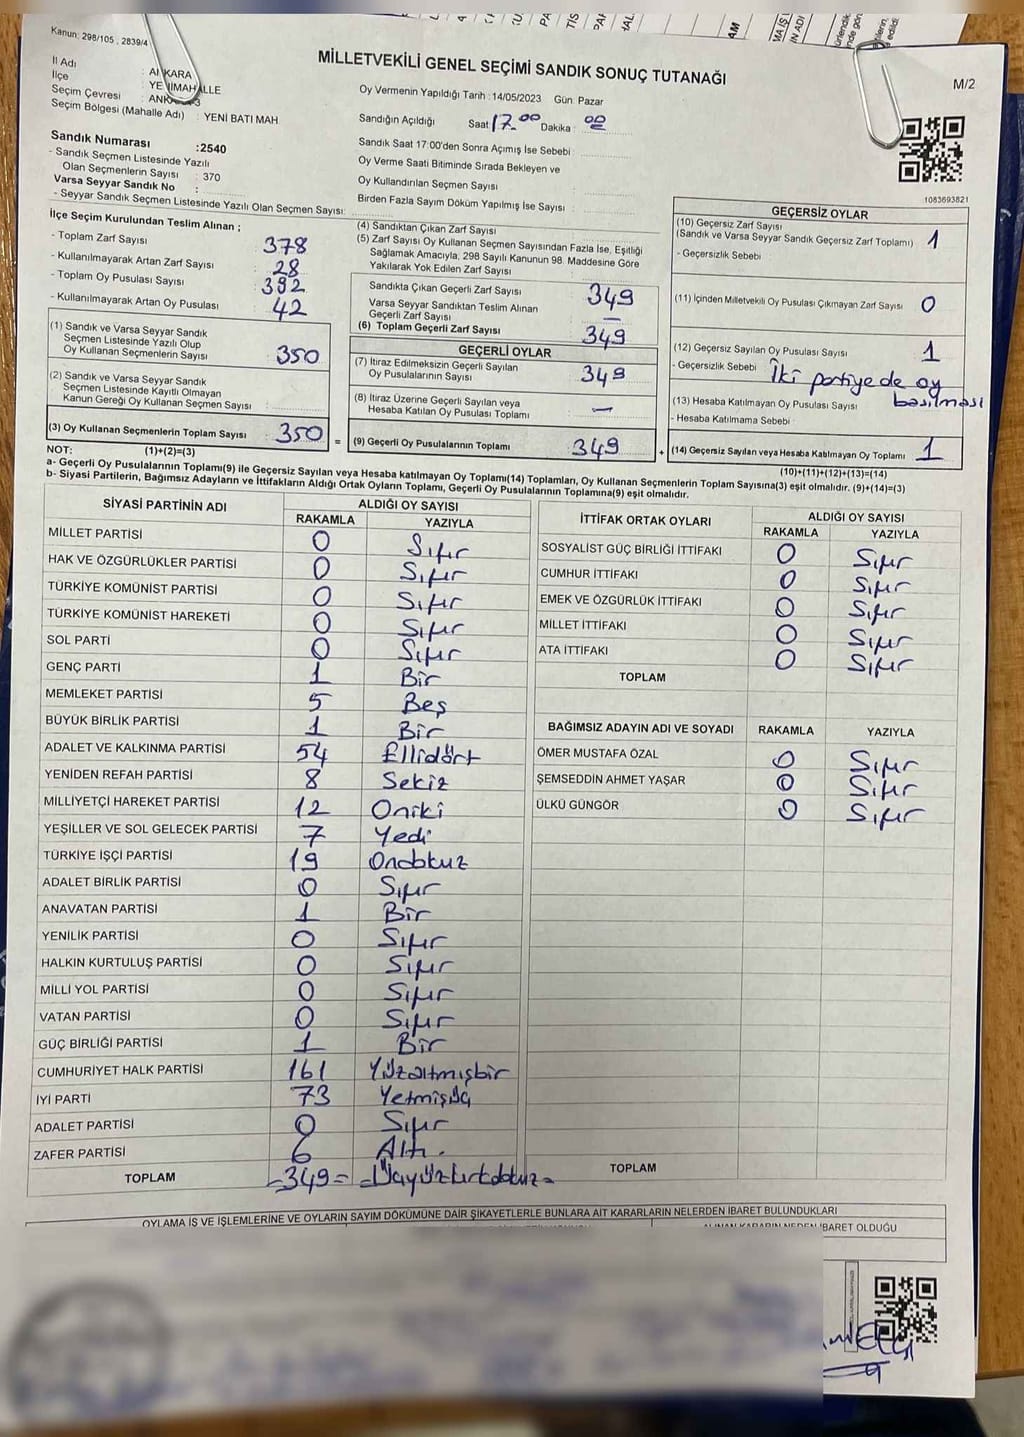 Kanun: 298/105 , 2839/4
MİLLETVEKİLİ GENEL SEÇİMİ SANDIK SONUÇ TUTANAĞI
M/2
İl Adı : ANKARA
İlçe : YENİMAHALLE
Seçim Çevresi : ANKARA 3
Seçim Bölgesi (Mahalle Adı) : YENİ BATI MAH
Oy Vermenin Yapıldığı Tarih : 14/05/2023 Gün Pazar
Sandığın Açıldığı Saat 17.00 Dakika : 00
Sandık Numarası : 2540
- Sandık Seçmen Listesinde Yazılı
Olan Seçmenlerin Sayısı : 370
Varsa Seyyar Sandık No :
- Seyyar Sandık Seçmen Listesinde Yazılı Olan Seçmen Sayısı:
Sandık Saat 17:00'den Sonra Açımış İse Sebebi :
Oy Verme Saati Bitiminde Sırada Bekleyen ve
Oy Kullandırılan Seçmen Sayısı :
Birden Fazla Sayım Döküm Yapılmış İse Sayısı :
1083693821
İlçe Seçim Kurulundan Teslim Alınan ;
- Toplam Zarf Sayısı : 378
- Kullanılmayarak Artan Zarf Sayısı : 28
- Toplam Oy Pusulası Sayısı : 392
- Kullanılmayarak Artan Oy Pusulası : 42
(1) Sandık ve Varsa Seyyar Sandık
Seçmen Listesinde Yazılı Olup
Oy Kullanan Seçmenlerin Sayısı : 350
(2) Sandık ve Varsa Seyyar Sandık
Seçmen Listesinde Kayıtlı Olmayan
Kanun Gereği Oy Kullanan Seçmen Sayısı :
(3) Oy Kullanan Seçmenlerin Toplam Sayısı : 350 =
(4) Sandıktan Çıkan Zarf Sayısı :
(5) Zarf Sayısı Oy Kullanan Seçmen Sayısından Fazla İse, Eşitliği
Sağlamak Amacıyla, 298 Sayılı Kanunun 98. Maddesine Göre
Yakılarak Yok Edilen Zarf Sayısı :
Sandıkta Çıkan Geçerli Zarf Sayısı : 349
Varsa Seyyar Sandıktan Teslim Alınan
Geçerli Zarf Sayısı : —
(6) Toplam Geçerli Zarf Sayısı : 349
GEÇERLİ OYLAR
(7) İtiraz Edilmeksizin Geçerli Sayılan
Oy Pusulalarının Sayısı : 349
(8) İtiraz Üzerine Geçerli Sayılan veya
Hesaba Katılan Oy Pusulası Toplamı : —
(9) Geçerli Oy Pusulalarının Toplamı : 349 +
GEÇERSİZ OYLAR
(10) Geçersiz Zarf Sayısı :
(Sandık ve Varsa Seyyar Sandık Geçersiz Zarf Toplamı) 1
- Geçersizlik Sebebi :
(11) İçinden Milletvekili Oy Pusulası Çıkmayan Zarf Sayısı : 0
(12) Geçersiz Sayılan Oy Pusulası Sayısı : 1
- Geçersizlik Sebebi : İki partiye de oy
basılması
(13) Hesaba Katılmayan Oy Pusulası Sayısı :
- Hesaba Katılmama Sebebi :
(14) Geçersiz Sayılan veya Hesaba Katılmayan Oy Toplamı : 1
NOT: (1)+(2)=(3) (10)+(11)+(12)+(13)=(14)
a- Geçerli Oy Pusulalarının Toplamı(9) ile Geçersiz Sayılan veya Hesaba katılmayan Oy Toplamı(14) Toplamları, Oy Kullanan Seçmenlerin Toplam Sayısına(3) eşit olmalıdır. (9)+(14)=(3)
b- Siyasi Partilerin, Bağımsız Adayların ve İttifakların Aldığı Ortak Oyların Toplamı, Geçerli Oy Pusulalarının Toplamına(9) eşit olmalıdır.
SİYASİ PARTİNİN ADI ALDIĞI OY SAYISI
RAKAMLA YAZIYLA
MİLLET PARTİSİ 0 Sıfır
HAK VE ÖZGÜRLÜKLER PARTİSİ 0 Sıfır
TÜRKİYE KOMÜNİST PARTİSİ 0 Sıfır
TÜRKİYE KOMÜNİST HAREKETİ 0 Sıfır
SOL PARTİ 0 Sıfır
GENÇ PARTİ 1 Bir
MEMLEKET PARTİSİ 5 Beş
BÜYÜK BİRLİK PARTİSİ 1 Bir
ADALET VE KALKINMA PARTİSİ 54 Ellidört
YENİDEN REFAH PARTİSİ 8 Sekiz
MİLLİYETÇİ HAREKET PARTİSİ 12 Oniki
YEŞİLLER VE SOL GELECEK PARTİSİ 7 Yedi
TÜRKİYE İŞÇİ PARTİSİ 19 Ondokuz
ADALET BİRLİK PARTİSİ 0 Sıfır
ANAVATAN PARTİSİ 1 Bir
YENİLİK PARTİSİ 0 Sıfır
HALKIN KURTULUŞ PARTİSİ 0 Sıfır
MİLLİ YOL PARTİSİ 0 Sıfır
VATAN PARTİSİ 0 Sıfır
GÜÇ BİRLİĞİ PARTİSİ 1 Bir
CUMHURİYET HALK PARTİSİ 161 Yüzaltmışbir
İYİ PARTİ 73 Yetmişüç
ADALET PARTİSİ 0 Sıfır
ZAFER PARTİSİ 6 Altı.
TOPLAM -349= =Üçyüzkırkdokuz=
İTTİFAK ORTAK OYLARI ALDIĞI OY SAYISI
RAKAMLA YAZIYLA
SOSYALİST GÜÇ BİRLİĞİ İTTİFAKI 0 Sıfır
CUMHUR İTTİFAKI 0 Sıfır
EMEK VE ÖZGÜRLÜK İTTİFAKI 0 Sıfır
MİLLET İTTİFAKI 0 Sıfır
ATA İTTİFAKI 0 Sıfır
TOPLAM
BAĞIMSIZ ADAYIN ADI VE SOYADI RAKAMLA YAZIYLA
ÖMER MUSTAFA ÖZAL 0 Sıfır
ŞEMSEDDİN AHMET YAŞAR 0 Sıfır
ÜLKÜ GÜNGÖR 0 Sıfır
TOPLAM
OYLAMA İŞ VE İŞLEMLERİNE VE OYLARIN SAYIM DÖKÜMÜNE DAİR ŞİKAYETLERLE BUNLARA AİT KARARLARIN NELERDEN İBARET BULUNDUKLARI
ALINAN KARARIN NEDEN İBARET OLDUĞU